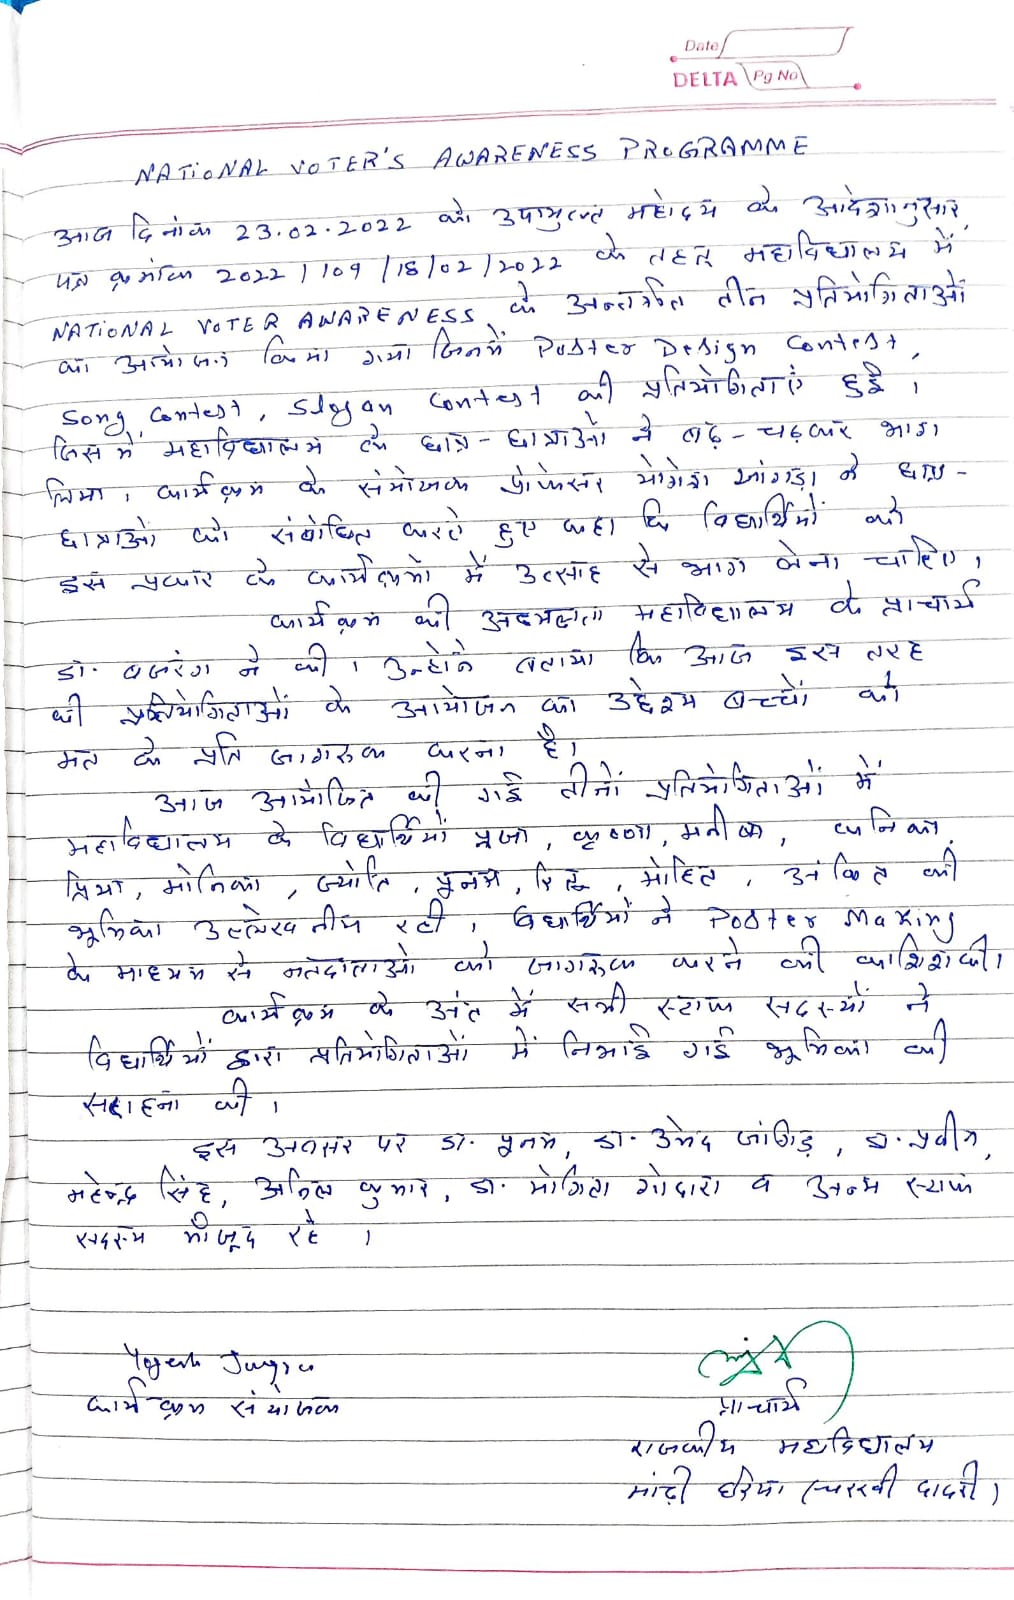 Date
DELTA Pg No
NATIONAL VOTER'S AWARENESS PROGRAMME
आज दिनांक 23.02.2022 को उपायुक्त महोदय के आदेशानुसार
पत्र क्रमांक 2022/109/18/02/2022 के तहत् महाविद्यालय में
NATIONAL VOTER AWARENESS के अन्तर्गत तीन प्रतियोगिताओं
का आयोजन किया गया जिनमें Poster Design Contest,
Song Contest, Slogan Contest की प्रतियोगिताएं हुई।
जिस में महाविद्यालय के छात्र-छात्राओं ने बढ़-चढ़कर भाग
लिया। कार्यक्रम के संयोजक प्रोफेसर योगेश जांगड़ा ने छात्र-
छात्राओं को संबोधित करते हुए कहा कि विद्यार्थियों को
इस प्रकार के कार्यक्रमों में उत्साह से भाग लेना चाहिए।
कार्यक्रम की अध्यक्षता महाविद्यालय के प्राचार्य
डा. बजरंग ने की। उन्होंने बताया कि आज इस तरह
की प्रतियोगिताओं के आयोजन का उद्देश्य बच्चों को
मत के प्रति जागरूक करना है।
आज आयोजित की गई तीनों प्रतियोगिताओं में
महाविद्यालय के विद्यार्थियों पूजा, कृष्णा, मनीषा, कनिका,
प्रिया, मोनिका, ज्योति, पूनम, रितू, मोहित, अंकित की
भूमिका उल्लेखनीय रही। विद्यार्थियों ने Poster Making
के माध्यम से मतदाताओं को जागरूक करने की कोशिश की।
कार्यक्रम के अंत में सभी स्टाफ सदस्यों ने
विद्यार्थियों द्वारा प्रतियोगिताओं में निभाई गई भूमिका की
सराहना की।
इस अवसर पर डा. पूनम, डा. उमेद जांगिड़, डा. प्रवीन,
महेन्द्र सिंह, अनिल कुमार, डा. योगिता गोदारा व अन्य स्टाफ
सदस्य मौजूद रहे।
Yogesh Jangra
कार्यक्रम संयोजक
प्राचार्य
राजकीय महाविद्यालय
मांढ़ी हरिया (चरखी दादरी)